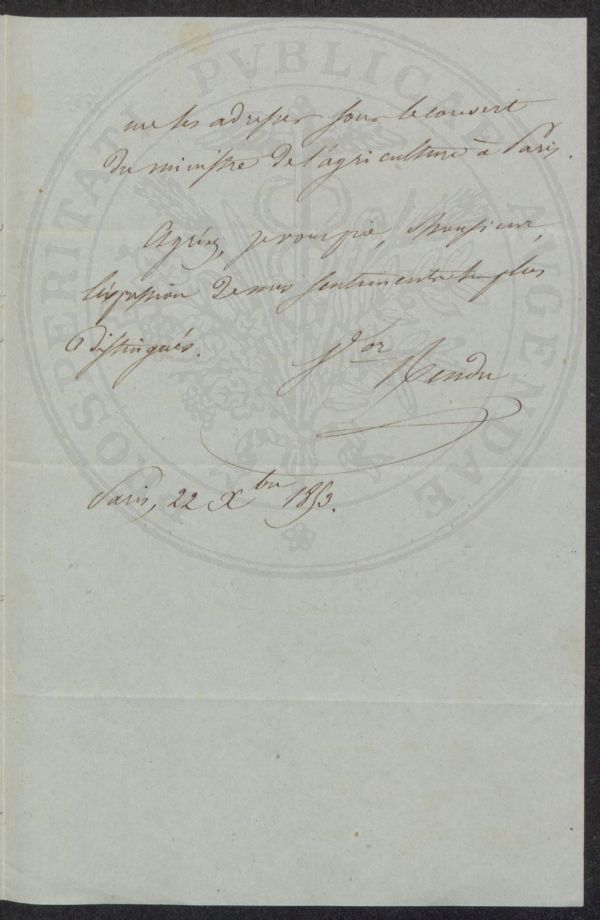 PROSPERITATI PVBLICAE AVGENDAE
me les adresser sous le couvert
du ministre de l'agriculture à Paris.
Agréez, je vous prie, Monsieur,
l'expression de mes sentiments les plus
distingués.
Vor Rendu
Paris, 22 Xbre 1853.